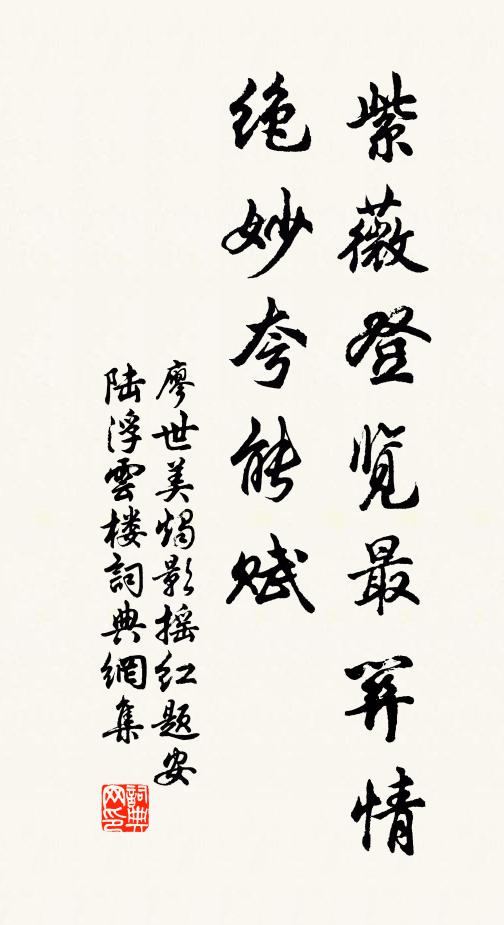 紫薇登览最关情
绝妙夸能赋
廖世美燭影摇红题安
陆浮雲楼詞典網集
詞典网印